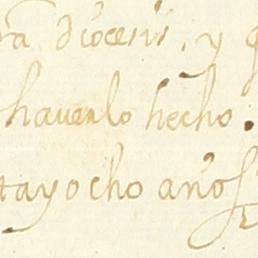 ra diocesis, y
haverlo hecho.
tayocho años